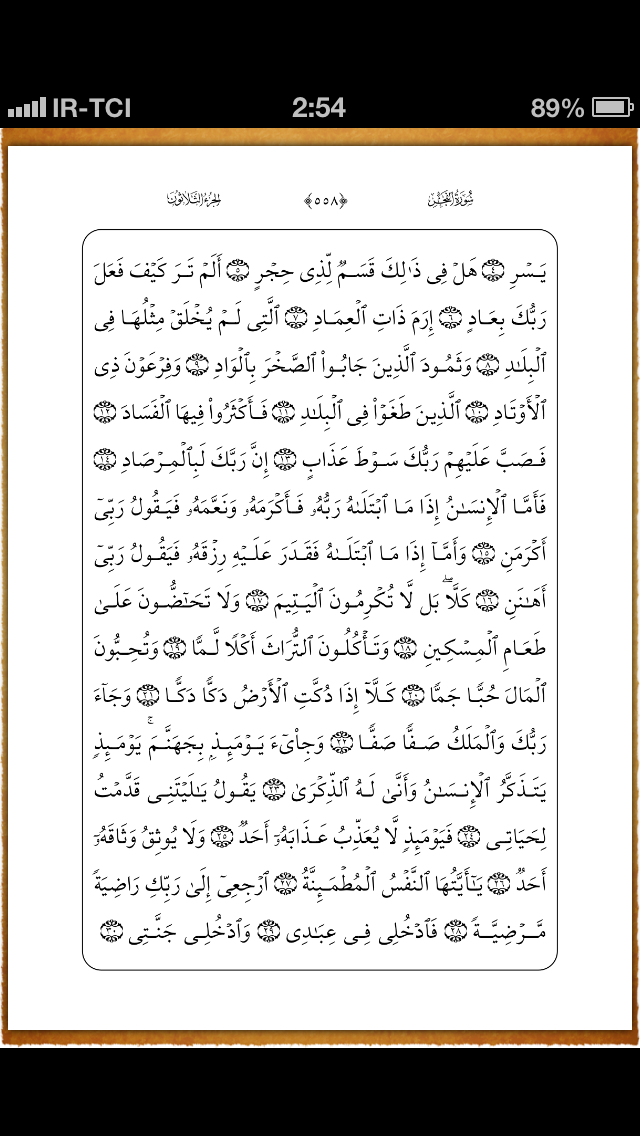 IR-TCI 2:54 89%
سُورَةُ الفَجْرِ ﴿٥٥٨﴾ الجُزءُ الثَّلَاثُونَ
يَسْرِ ٤ هَلْ فِى ذَٰلِكَ قَسَمٌ لِّذِى حِجْرٍ ٥ أَلَمْ تَرَ كَيْفَ فَعَلَ
رَبُّكَ بِعَادٍ ٦ إِرَمَ ذَاتِ ٱلْعِمَادِ ٧ ٱلَّتِى لَمْ يُخْلَقْ مِثْلُهَا فِى
ٱلْبِلَٰدِ ٨ وَثَمُودَ ٱلَّذِينَ جَابُوا۟ ٱلصَّخْرَ بِٱلْوَادِ ٩ وَفِرْعَوْنَ ذِى
ٱلْأَوْتَادِ ١٠ ٱلَّذِينَ طَغَوْا۟ فِى ٱلْبِلَٰدِ ١١ فَأَكْثَرُوا۟ فِيهَا ٱلْفَسَادَ ١٢
فَصَبَّ عَلَيْهِمْ رَبُّكَ سَوْطَ عَذَابٍ ١٣ إِنَّ رَبَّكَ لَبِٱلْمِرْصَادِ ١٤
فَأَمَّا ٱلْإِنسَٰنُ إِذَا مَا ٱبْتَلَىٰهُ رَبُّهُۥ فَأَكْرَمَهُۥ وَنَعَّمَهُۥ فَيَقُولُ رَبِّىٓ
أَكْرَمَنِ ١٥ وَأَمَّآ إِذَا مَا ٱبْتَلَىٰهُ فَقَدَرَ عَلَيْهِ رِزْقَهُۥ فَيَقُولُ رَبِّىٓ
أَهَٰنَنِ ١٦ كَلَّا ۖ بَل لَّا تُكْرِمُونَ ٱلْيَتِيمَ ١٧ وَلَا تَحَٰٓضُّونَ عَلَىٰ
طَعَامِ ٱلْمِسْكِينِ ١٨ وَتَأْكُلُونَ ٱلتُّرَاثَ أَكْلًا لَّمًّا ١٩ وَتُحِبُّونَ
ٱلْمَالَ حُبًّا جَمًّا ٢٠ كَلَّآ إِذَا دُكَّتِ ٱلْأَرْضُ دَكًّا دَكًّا ٢١ وَجَآءَ
رَبُّكَ وَٱلْمَلَكُ صَفًّا صَفًّا ٢٢ وَجِا۟ىٓءَ يَوْمَئِذٍۭ بِجَهَنَّمَ ۚ يَوْمَئِذٍ
يَتَذَكَّرُ ٱلْإِنسَٰنُ وَأَنَّىٰ لَهُ ٱلذِّكْرَىٰ ٢٣ يَقُولُ يَٰلَيْتَنِى قَدَّمْتُ
لِحَيَاتِى ٢٤ فَيَوْمَئِذٍ لَّا يُعَذِّبُ عَذَابَهُۥٓ أَحَدٌ ٢٥ وَلَا يُوثِقُ وَثَاقَهُۥٓ
أَحَدٌ ٢٦ يَٰٓأَيَّتُهَا ٱلنَّفْسُ ٱلْمُطْمَئِنَّةُ ٢٧ ٱرْجِعِىٓ إِلَىٰ رَبِّكِ رَاضِيَةً
مَّرْضِيَّةً ٢٨ فَٱدْخُلِى فِى عِبَٰدِى ٢٩ وَٱدْخُلِى جَنَّتِى ٣٠